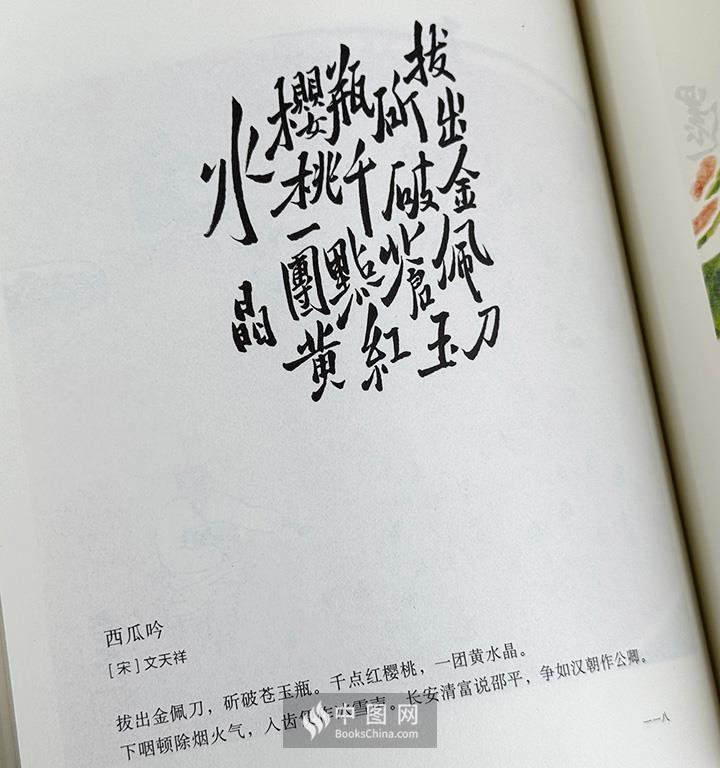 拔出金佩刀
斫破蒼玉
瓶千點紅
櫻桃一團黃
水晶
西瓜吟
[宋]文天祥
拔出金佩刀，斫破苍玉瓶。千点红樱桃，一团黄水晶。
下咽顿除烟火气，入齿雪声。长安清富说邵平，争如汉朝作公卿。
一一八
中图网
BooksChina.com